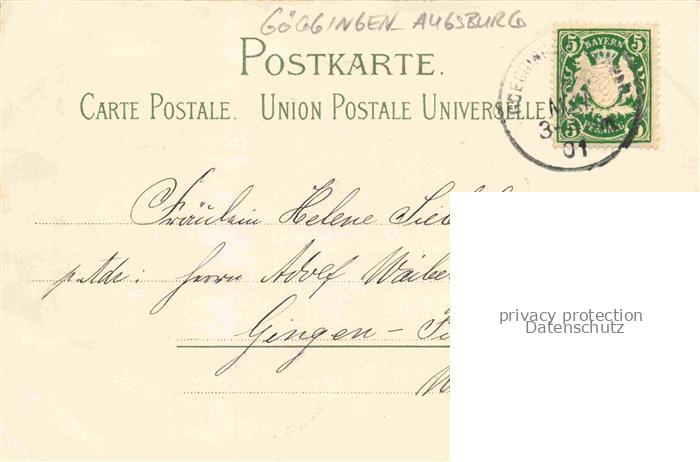 GÖGGINGEN AUGSBURG
POSTKARTE.
CARTE POSTALE. UNION POSTALE UNIVERSELLE
5 BAYERN 5
5 PFENNIG 5
01
Fräulein Helene
p. Adr: Herrn Adolf
Gingen -
privacy protection
Datenschutz